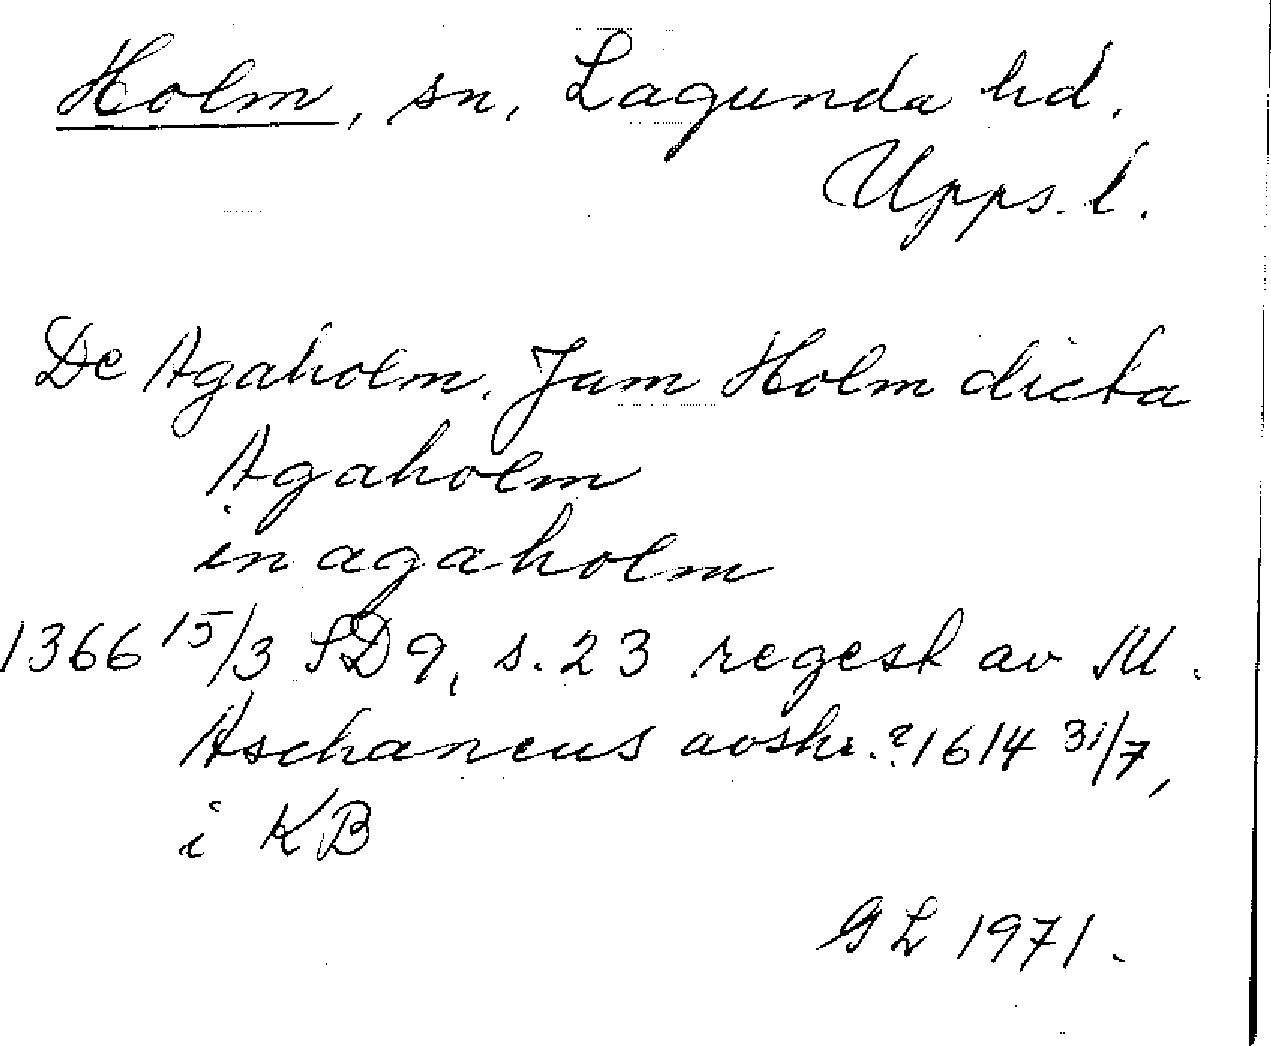 Holm, sn, Lagunda hd.
Upps. l.
De Agaholm. Jam Holm dicta
Agaholm
in agaholm
1366 15/3 SD 9, s. 23 regest av M.
Aschaneus avskr.? 1614 31/7,
i KB
GL 1971.